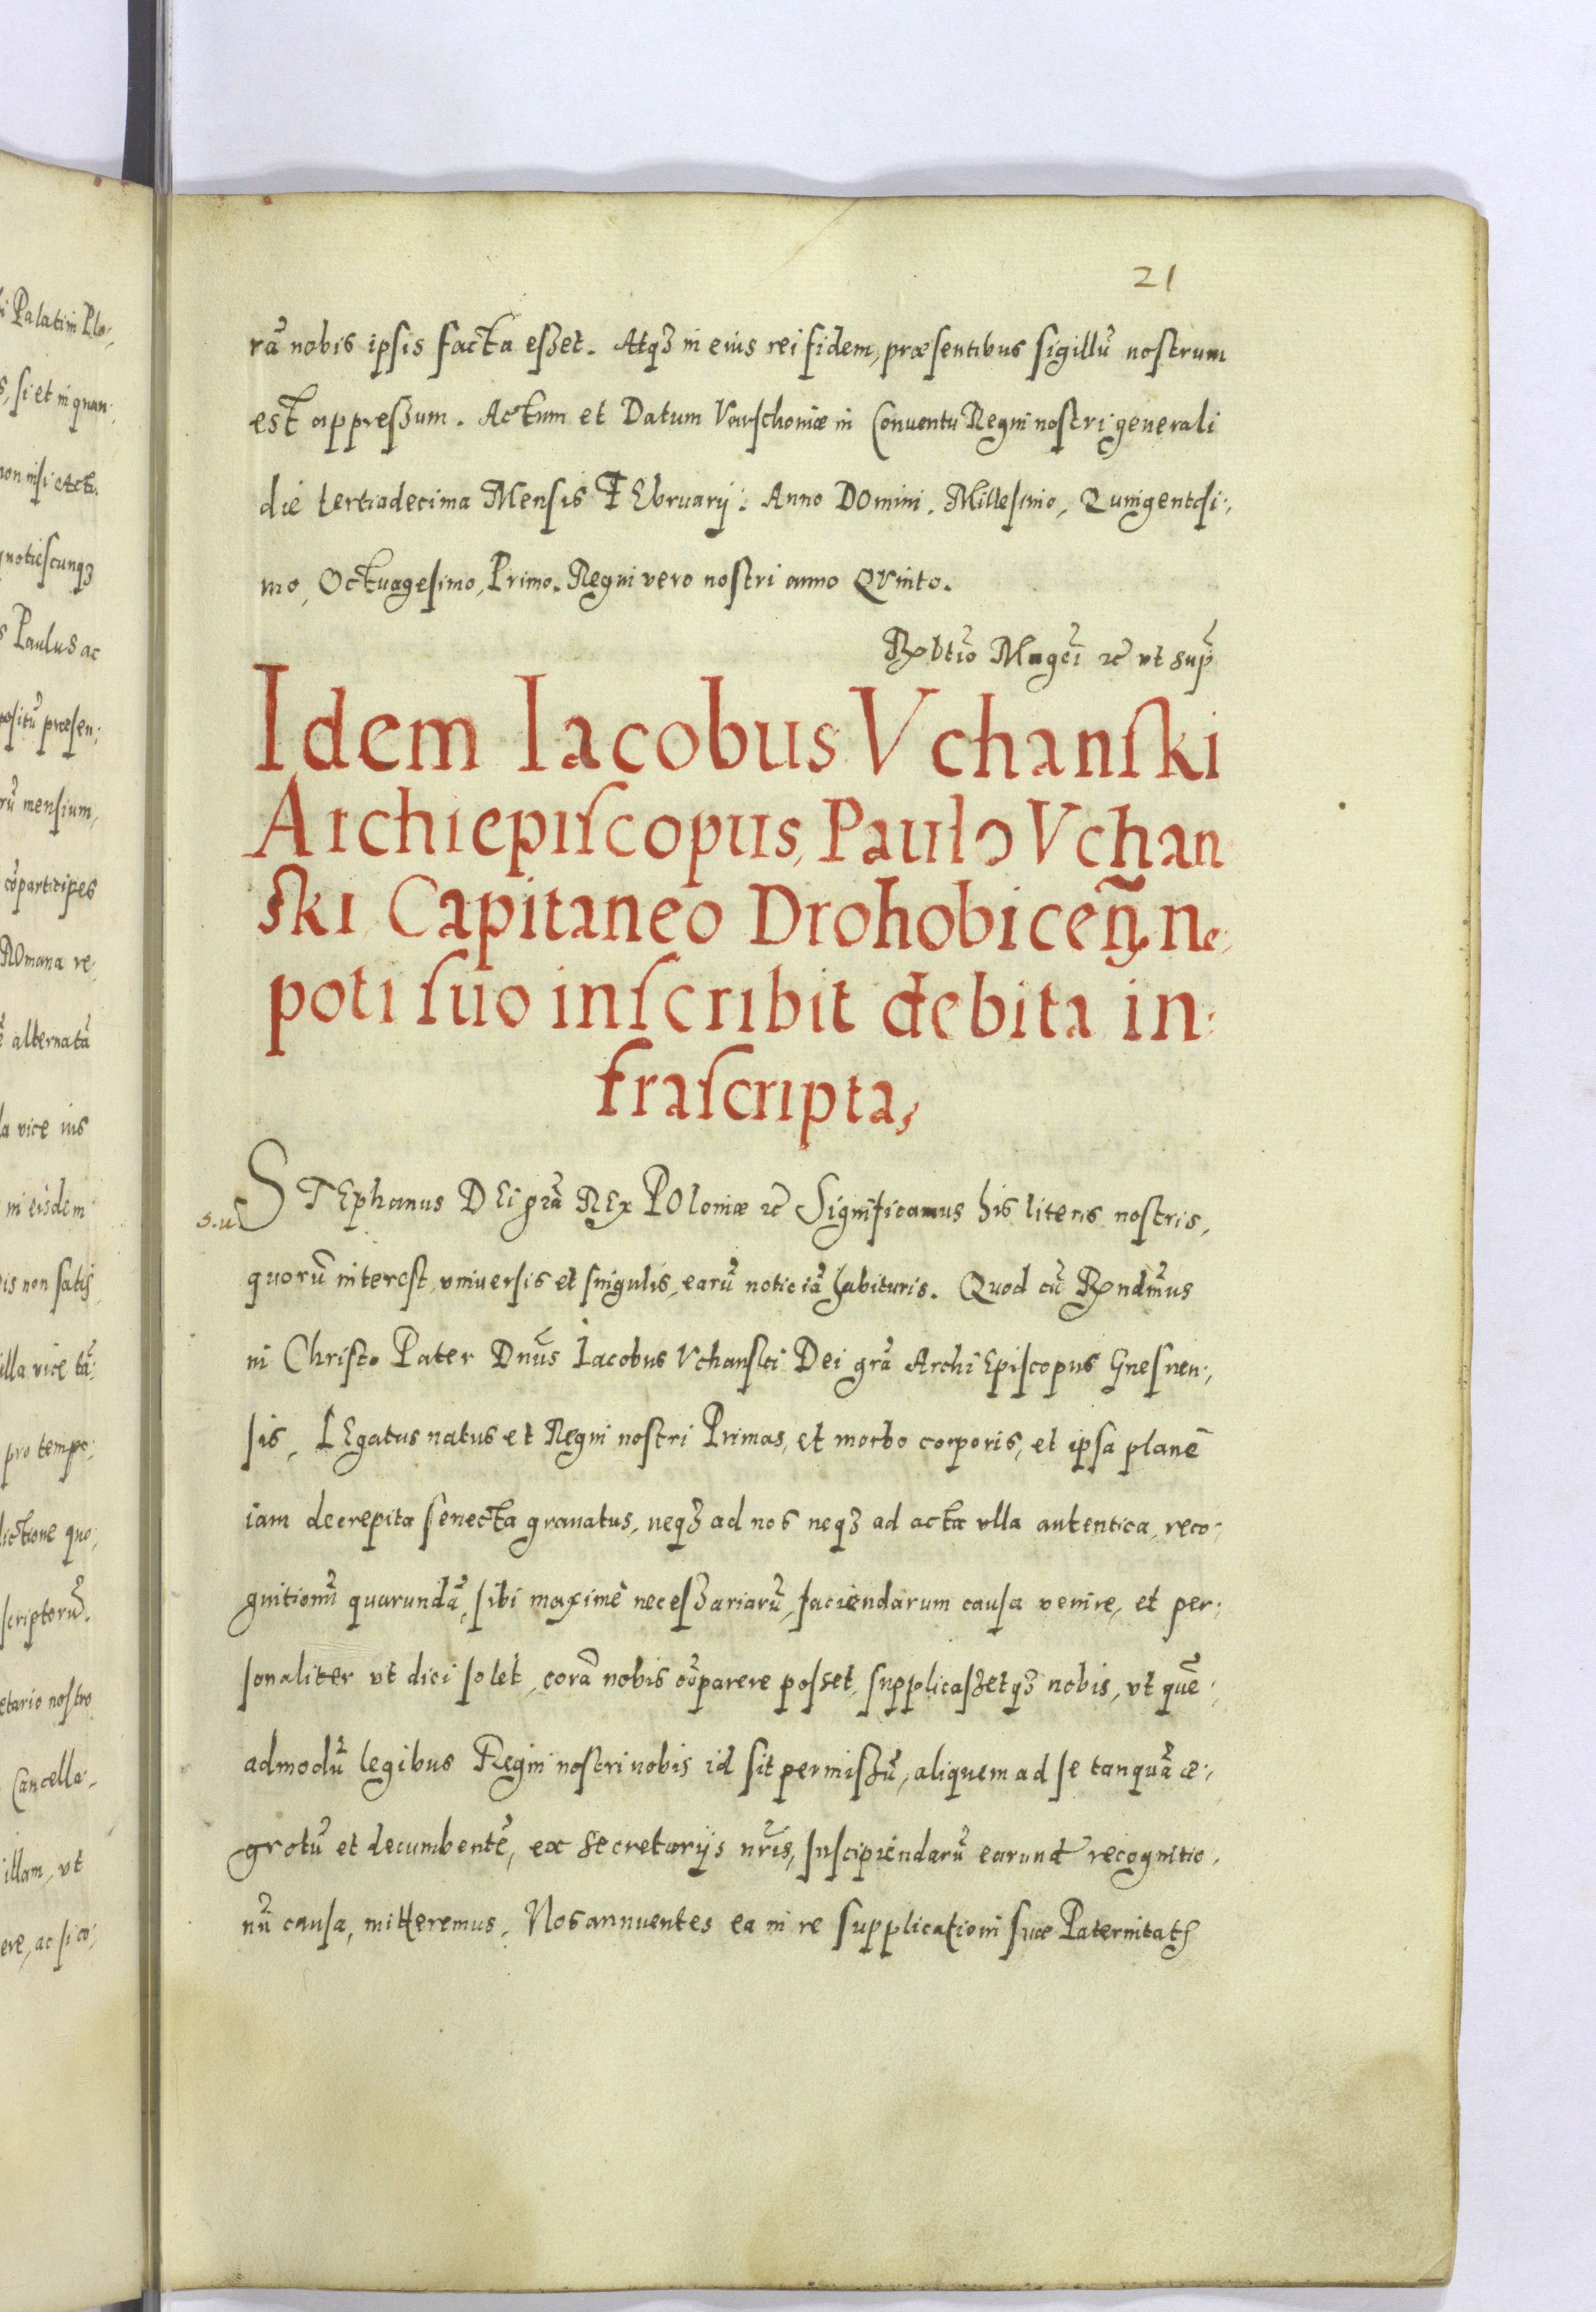 i Palatini Plo:
s, si et in quan:
non nisi Acto.
quotiescunqȝ
s Paulus ac
positũ præsen:
rũ mensium,
cõparticipes
ROmana re:
alternatã
la vice ius
in eisdem
is non satis
illa vice tã:
pro tempo:
dictione quo:
scriptorũ.
etario nostro
Cancella:
illam, vt
ere, ac si co:
21
rã nobis ipsis facta eßet. Atqȝ in eius rei fidem, præsentibus sigillũ nostrum
est appreßum. Actum et Datum Varschoniæ in Conuentu Regni nostri generali
die tertiadecima Mensis FEbruarij: Anno DOmini. Millesimo, Quingentesi:,
mo, Octuagesimo, Primo. Regni vero nostri anno QVinto.
Rxbtio Magci ꝛc̃ vt sup
Idem Iacobus Vchanſki
Archiepiſcopus, Paulo Vchan
ſki Capitaneo Drohobiceñ. Ne:
poti ſuo inſcribit debita in:
fraſcripta,
s.u
STEphanus DEi grã REx POloniæ ꝛc̃ Significamus his literis nostris,
quorũ interest, vniuersis et singulis, earũ noticiã habituris. Quod cũ Rxndm̃us
in Christo Pater Dnũs Iacobus Vchanski Dei grã ArchiEpiscopus Gnesnen:,
sis, LEgatus natus et Regni nostri Primas, et morbo corporis, et ipsa planè
iam decrepita senecta grauatus, neqȝ ad nos neqȝ ad acta vlla autentica, reco:
gnitionũ quarundã, sibi maximè neceßariarũ, faciendarum causa venire, et per:
sonaliter vt dici solet, corã nobis cõparere posset, supplicaßetqȝ nobis, vt quẽ:
admodũ legibus Regni nostri nobis id sit permißũ, aliquem ad se tanquã æ:,
grotũ et decumbentẽ, ex Secretarijs nr̃is, suscipiendarũ earund recognitio,
nũ causa, mitteremus. Nos annuentes ea in re supplicationi suæ Paternitatꝭ